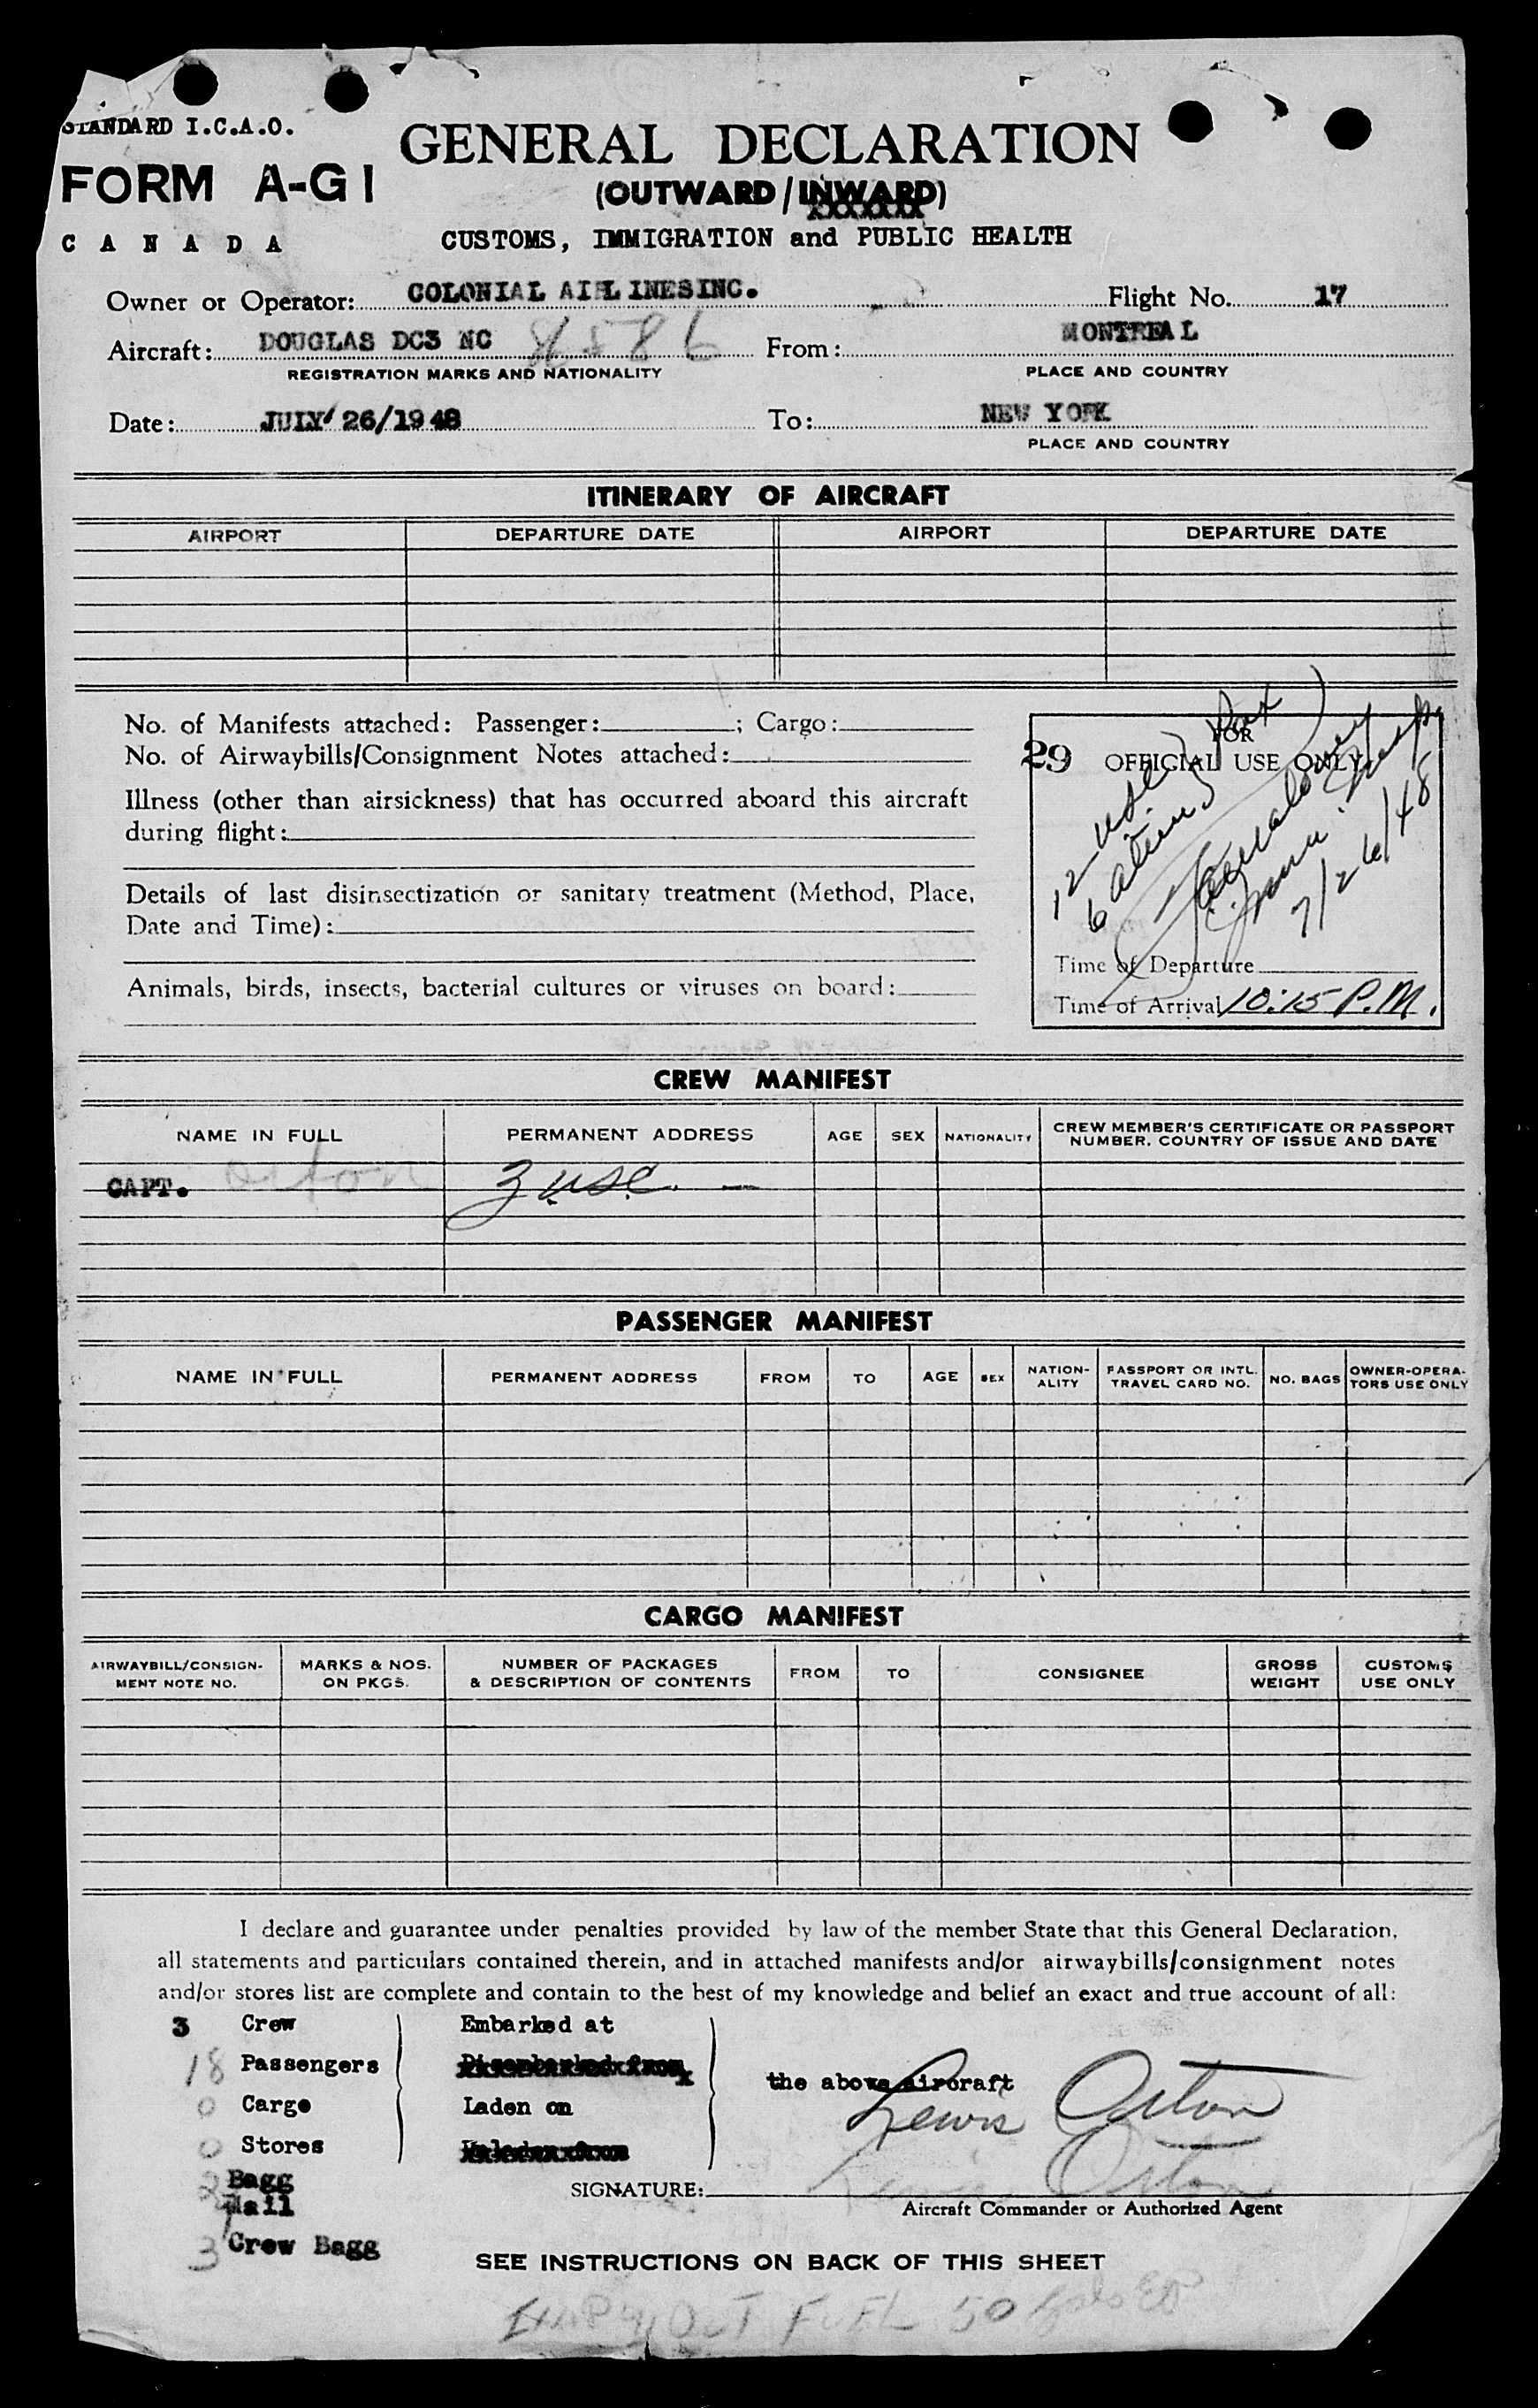 STANDARD I.C.A.O.
FORM A-G1
CANADA
GENERAL DECLARATION
(OUTWARD/INWARD)
CUSTOMS, IMMIGRATION and PUBLIC HEALTH
Owner or Operator: COLONIAL AIRLINES INC. Flight No. 17
Aircraft: DOUGLAS DC3 NC 86 From: MONTREAL
REGISTRATION MARKS AND NATIONALITY PLACE AND COUNTRY
Date: JULY 26/1948 To: NEW YORK
PLACE AND COUNTRY
ITINERARY OF AIRCRAFT
AIRPORT DEPARTURE DATE AIRPORT DEPARTURE DATE
No. of Manifests attached: Passenger: ; Cargo:
No. of Airwaybills/Consignment Notes attached:
Illness (other than airsickness) that has occurred aboard this aircraft
during flight:
Details of last disinsectization or sanitary treatment (Method, Place,
Date and Time):
Animals, birds, insects, bacterial cultures or viruses on board:
29 FOR
OFFICIAL USE ONLY
12 usc
6 aliens
Pax
7/26/48
Time of Departure
Time of Arrival 10:15 P.M.
CREW MANIFEST
NAME IN FULL PERMANENT ADDRESS AGE SEX NATIONALITY CREW MEMBER'S CERTIFICATE OR PASSPORT
NUMBER, COUNTRY OF ISSUE AND DATE
CAPT. Orton 3 usc. —
PASSENGER MANIFEST
NAME IN FULL PERMANENT ADDRESS FROM TO AGE SEX NATION-
ALITY PASSPORT OR INTL.
TRAVEL CARD NO. NO. BAGS OWNER-OPERA-
TORS USE ONLY
CARGO MANIFEST
AIRWAYBILL/CONSIGN-
MENT NOTE NO. MARKS & NOS.
ON PKGS. NUMBER OF PACKAGES
& DESCRIPTION OF CONTENTS FROM TO CONSIGNEE GROSS
WEIGHT CUSTOMS
USE ONLY
I declare and guarantee under penalties provided by law of the member State that this General Declaration,
all statements and particulars contained therein, and in attached manifests and/or airwaybills/consignment notes
and/or stores list are complete and contain to the best of my knowledge and belief an exact and true account of all:
3 Crew Embarked at
18 Passengers Disembarked from
the above aircraft
0 Cargo Laden on
Lewis Orton
0 Stores Unladen from
Bagg
Mail
SIGNATURE: Lewis Orton
Aircraft Commander or Authorized Agent
3 Crew Bagg
SEE INSTRUCTIONS ON BACK OF THIS SHEET
OUT FUEL 50 gals